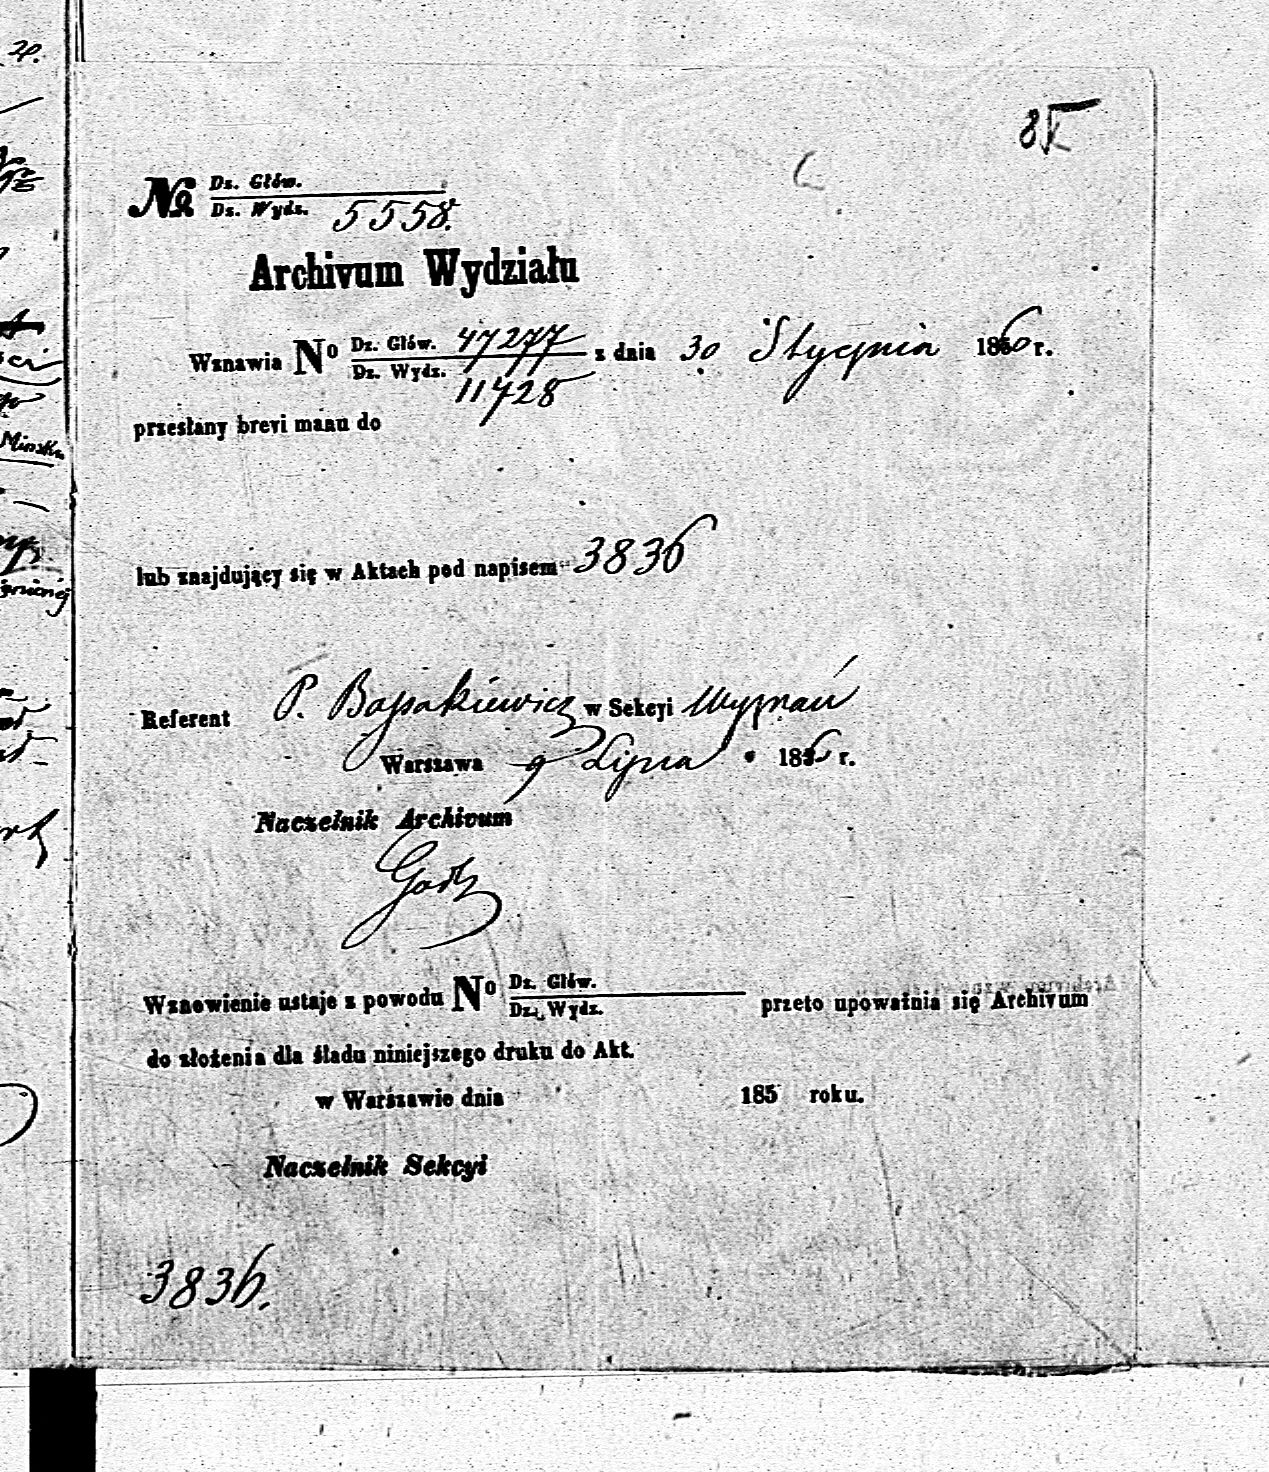 № Dz. Głów.
Dz. Wydz. 5558.
Archivum Wydziału
Wznawia No Dz. Głów. 47277 z dnia 30 Stycznia 1860 r.
Dz. Wydz. 11428
przesłany brevi manu do
lub znajdujący się w Aktach pod napisem 3836
Referent P. Bassakiewicz w Sekcyi Wyznań
Warszawa 9 Lipca 186 r.
Naczelnik Archivum
Wznowienie ustaje z powodu No Dz. Głów.
Dz. Wydz. przeto upoważnia się Archivum
do złożenia dla śladu niniejszego druku do Akt.
w Warszawie dnia 185 roku.
Naczelnik Sekcyi
3836.